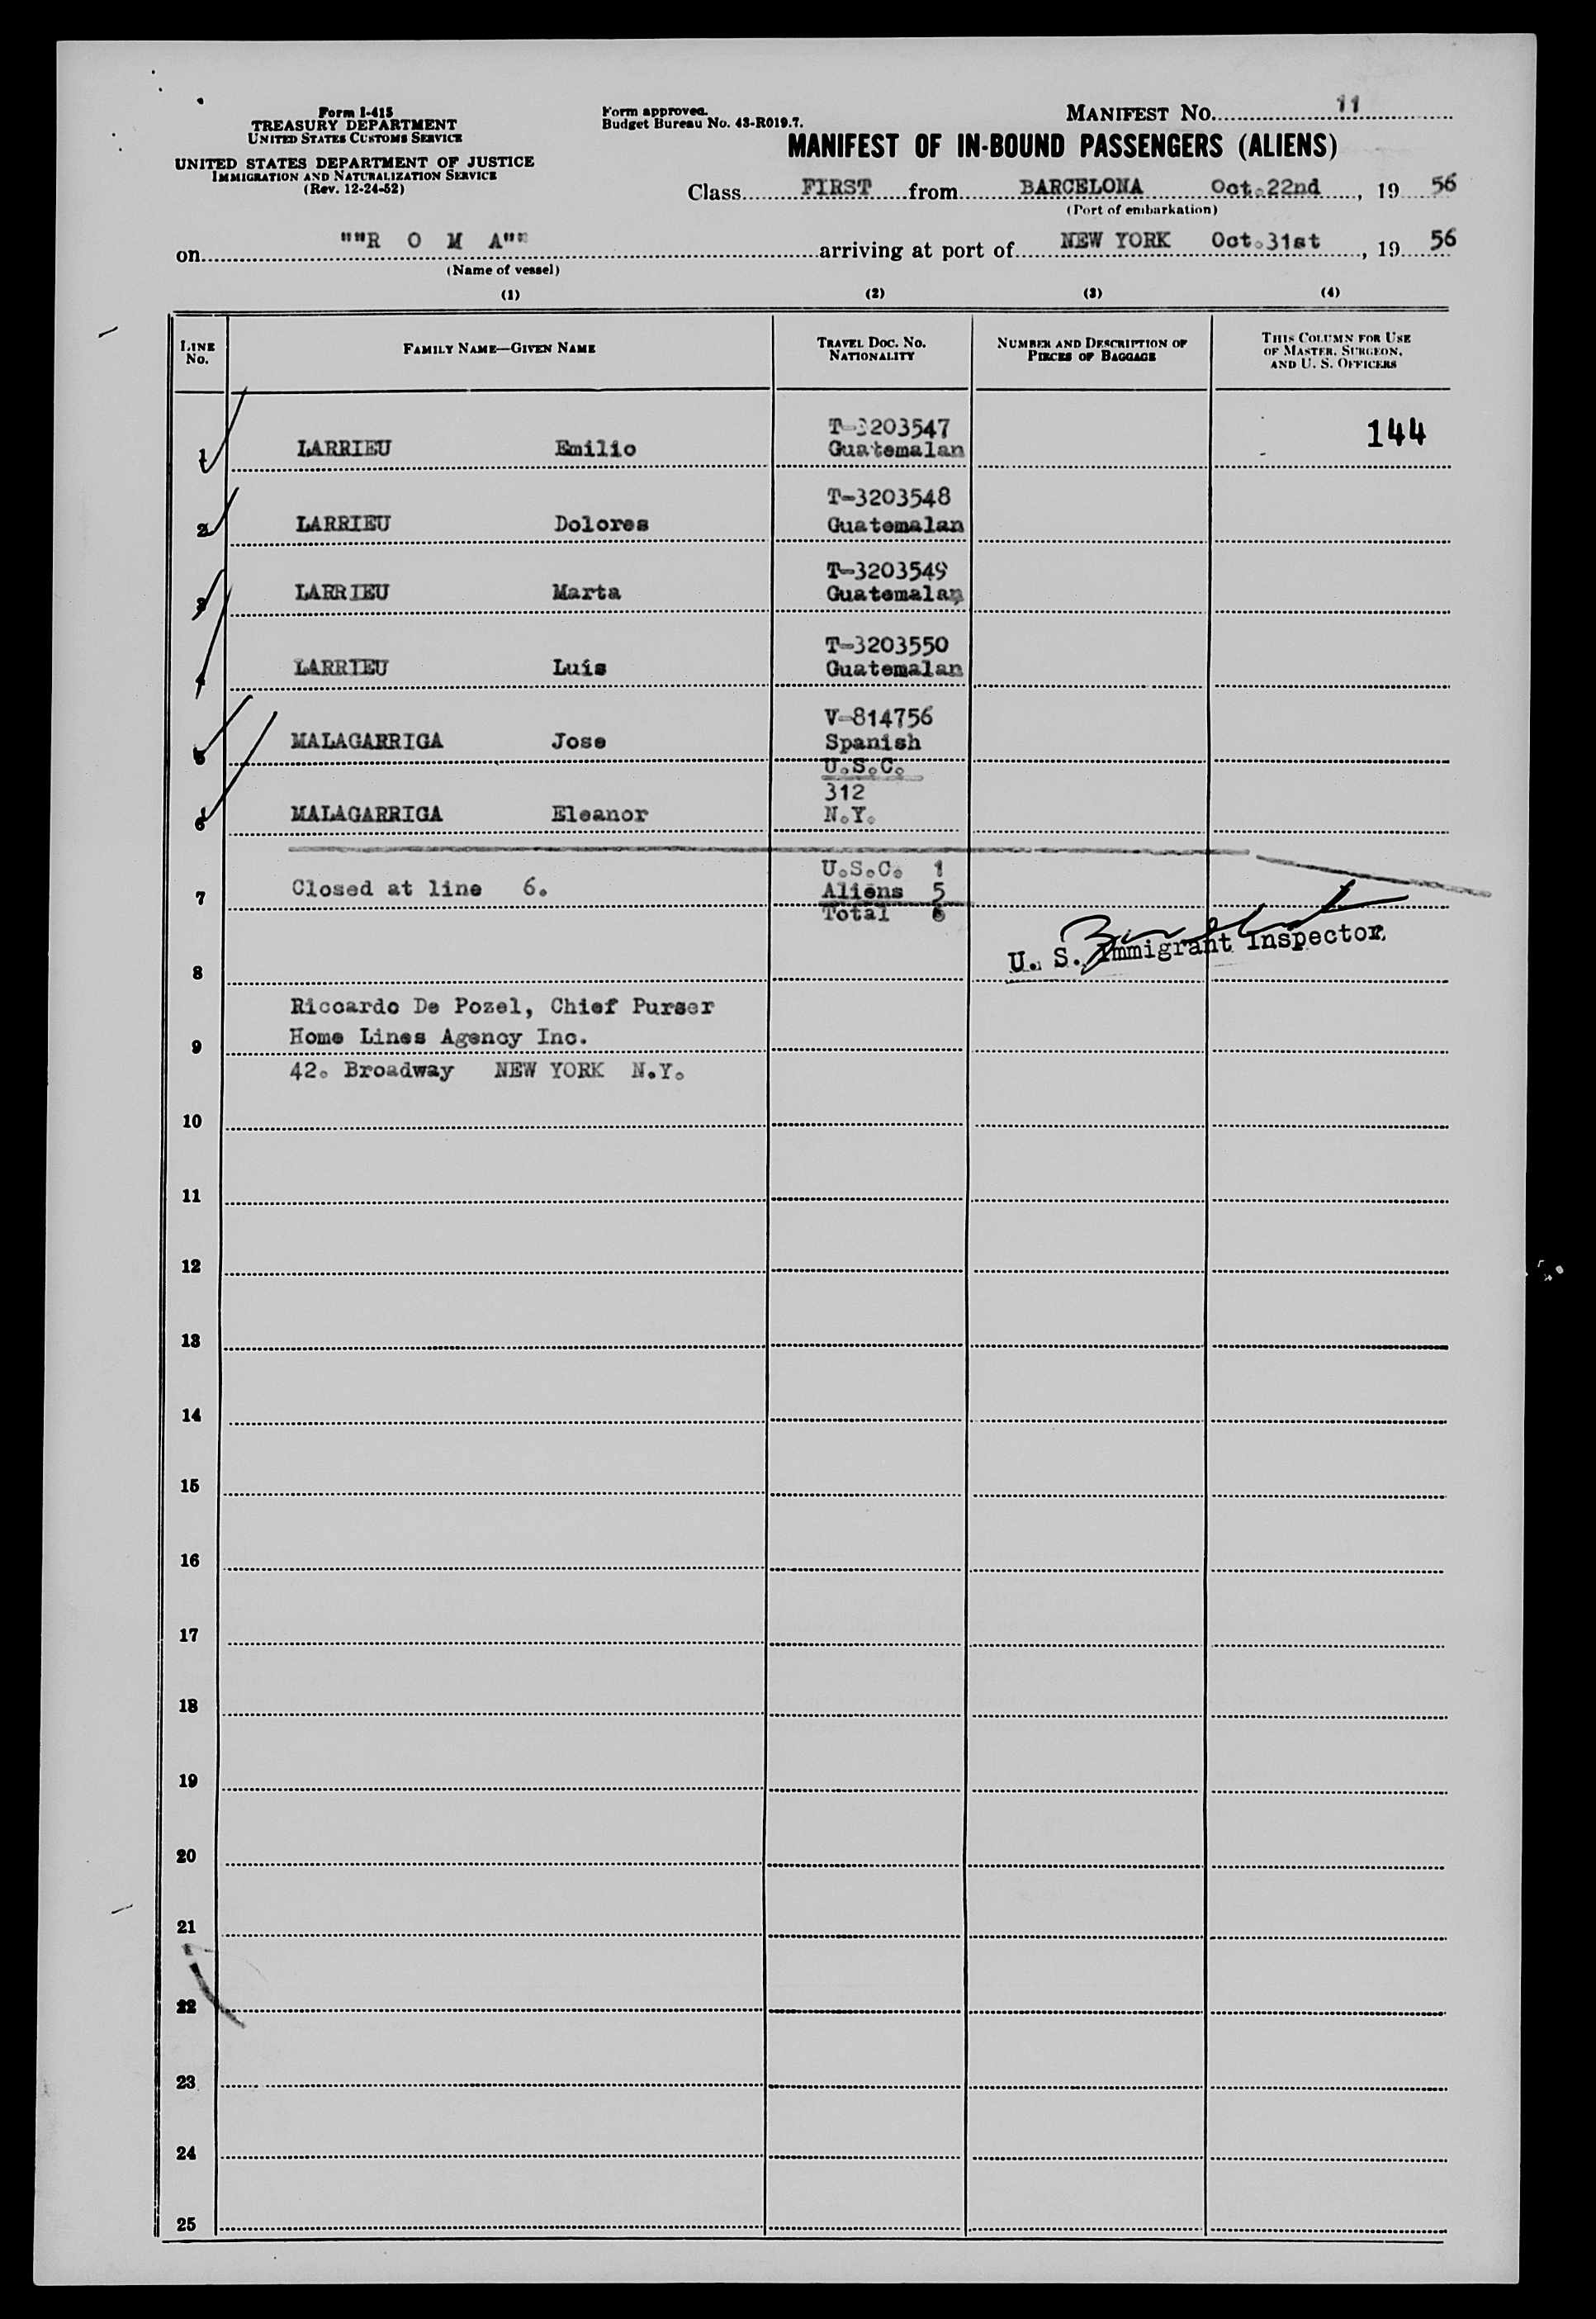 Form I-415
TREASURY DEPARTMENT
UNITED STATES CUSTOMS SERVICE
UNITED STATES DEPARTMENT OF JUSTICE
IMMIGRATION AND NATURALIZATION SERVICE
(Rev. 12-24-52)
Form approved.
Budget Bureau No. 43-R019.7.
MANIFEST No. 11
MANIFEST OF IN-BOUND PASSENGERS (ALIENS)
Class FIRST from BARCELONA Oct.22nd, 19 56
(Port of embarkation)
on ""R O M A"" arriving at port of NEW YORK Oct.31st, 19 56
(Name of vessel)
(1) (2) (3) (4)
LINE No. FAMILY NAME—GIVEN NAME TRAVEL DOC. NO. NATIONALITY NUMBER AND DESCRIPTION OF PIECES OF BAGGAGE THIS COLUMN FOR USE OF MASTER, SURGEON, AND U. S. OFFICERS
T-3203547 144
1 LARRIEU Emilio Guatemalan
T-3203548
2 LARRIEU Dolores Guatemalan
T-3203549
3 LARRIEU Marta Guatemalan
T-3203550
4 LARRIEU Luis Guatemalan
V-814756
5 MALAGARRIGA Jose Spanish
U.S.C.
312
6 MALAGARRIGA Eleanor N.Y.
U.S.C. 1
7 Closed at line 6. Aliens 5
Total 6
8 U. S. Immigrant Inspector
Riccardo De Pozel, Chief Purser
9 Home Lines Agency Inc.
42. Broadway NEW YORK N.Y.
10
11
12
13
14
15
16
17
18
19
20
21
22
23
24
25